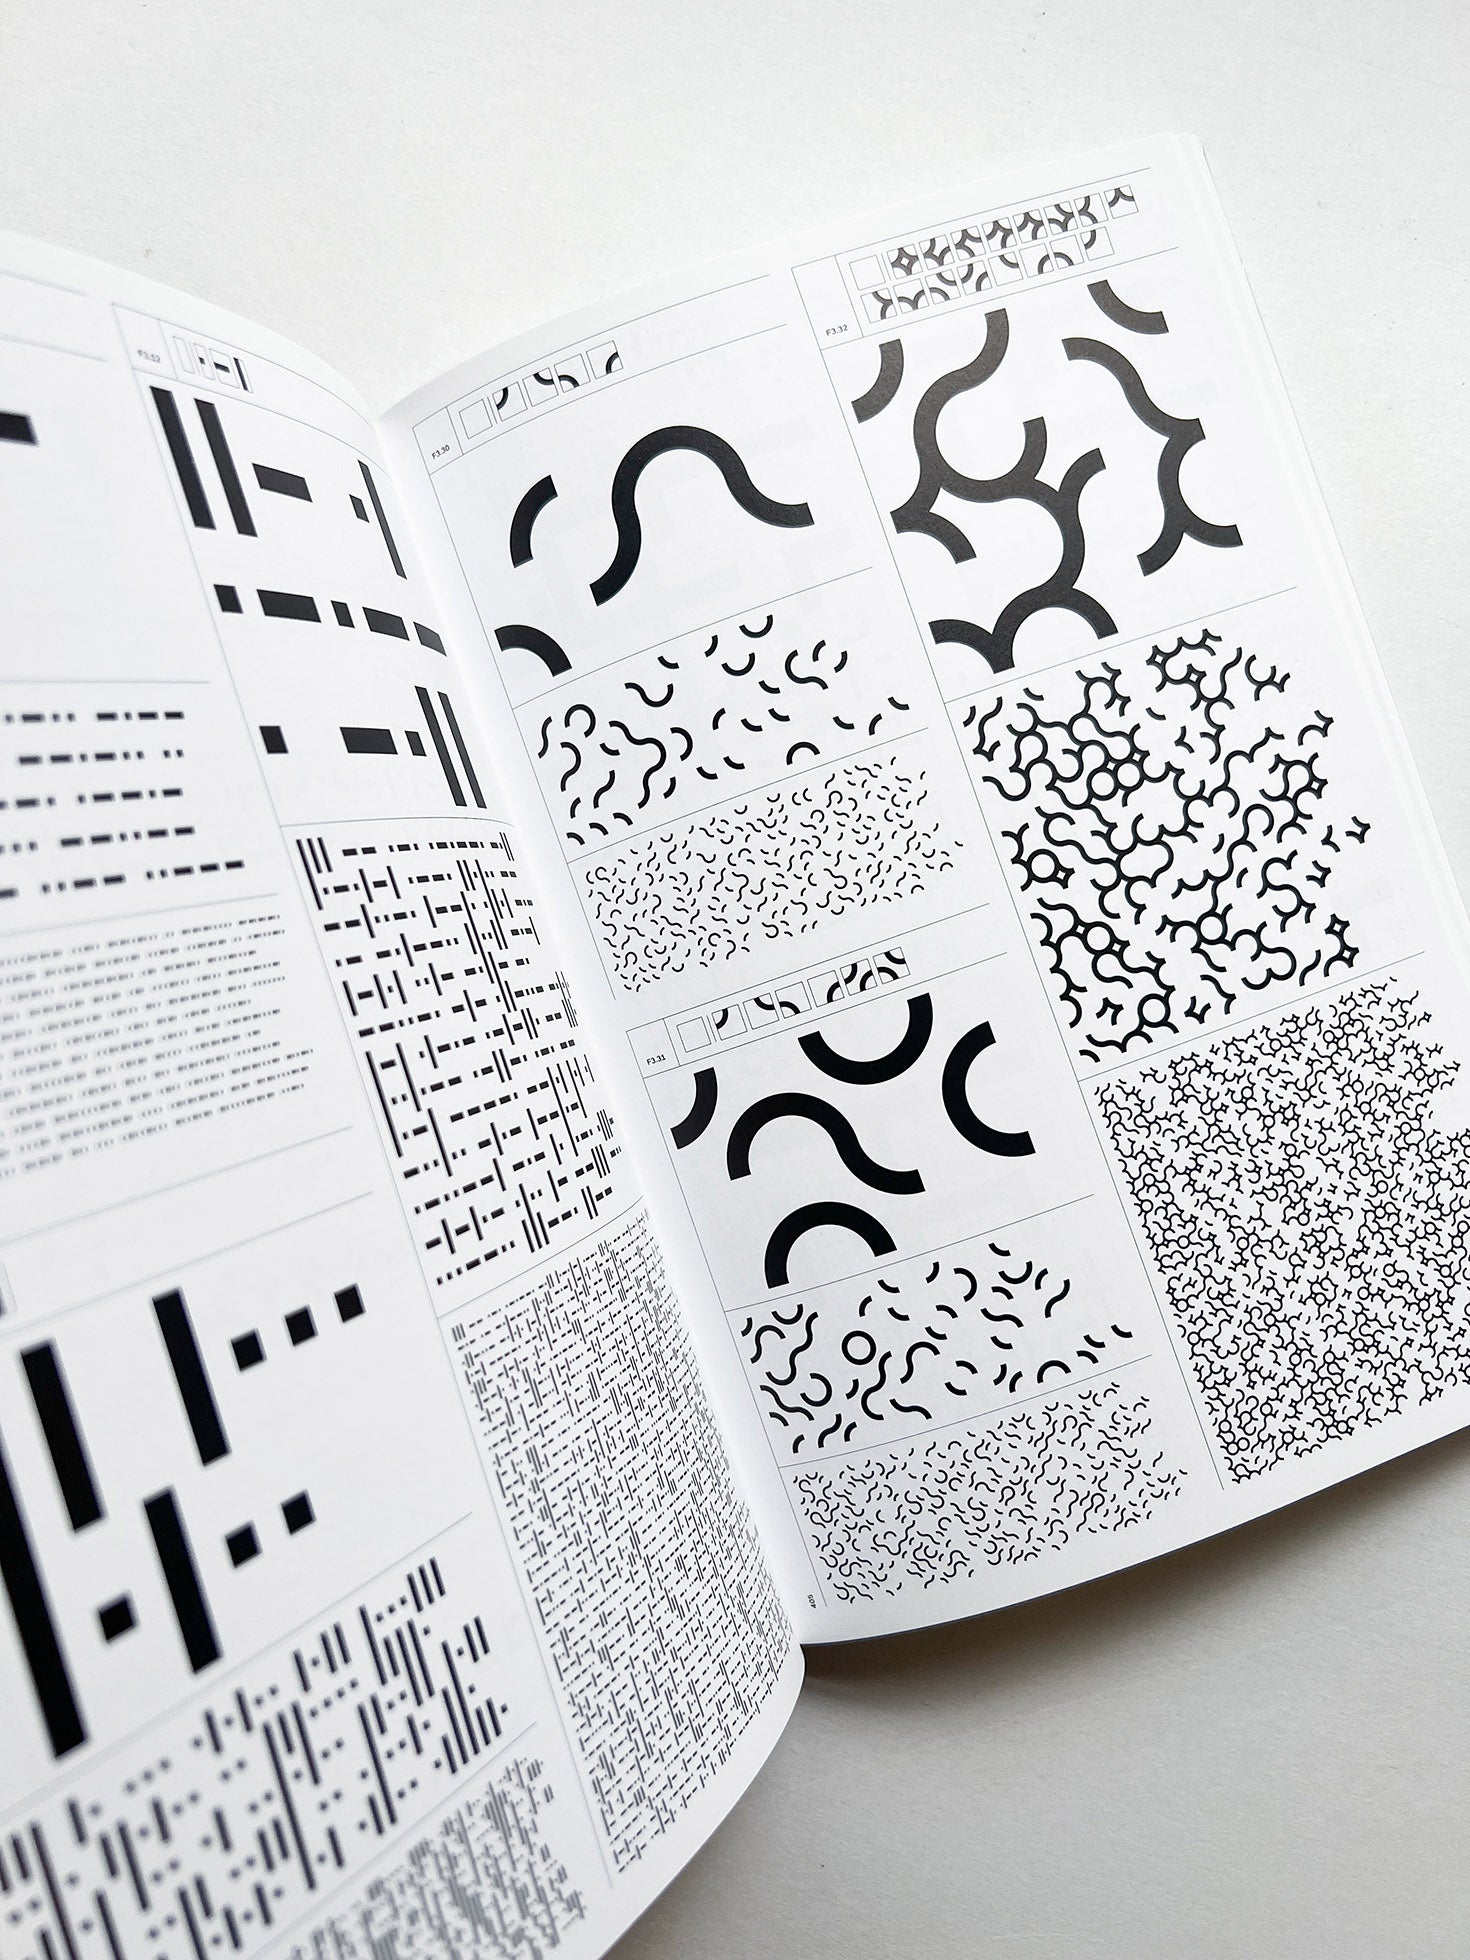 F3.12
F3.30
F3.31
F3.32
409